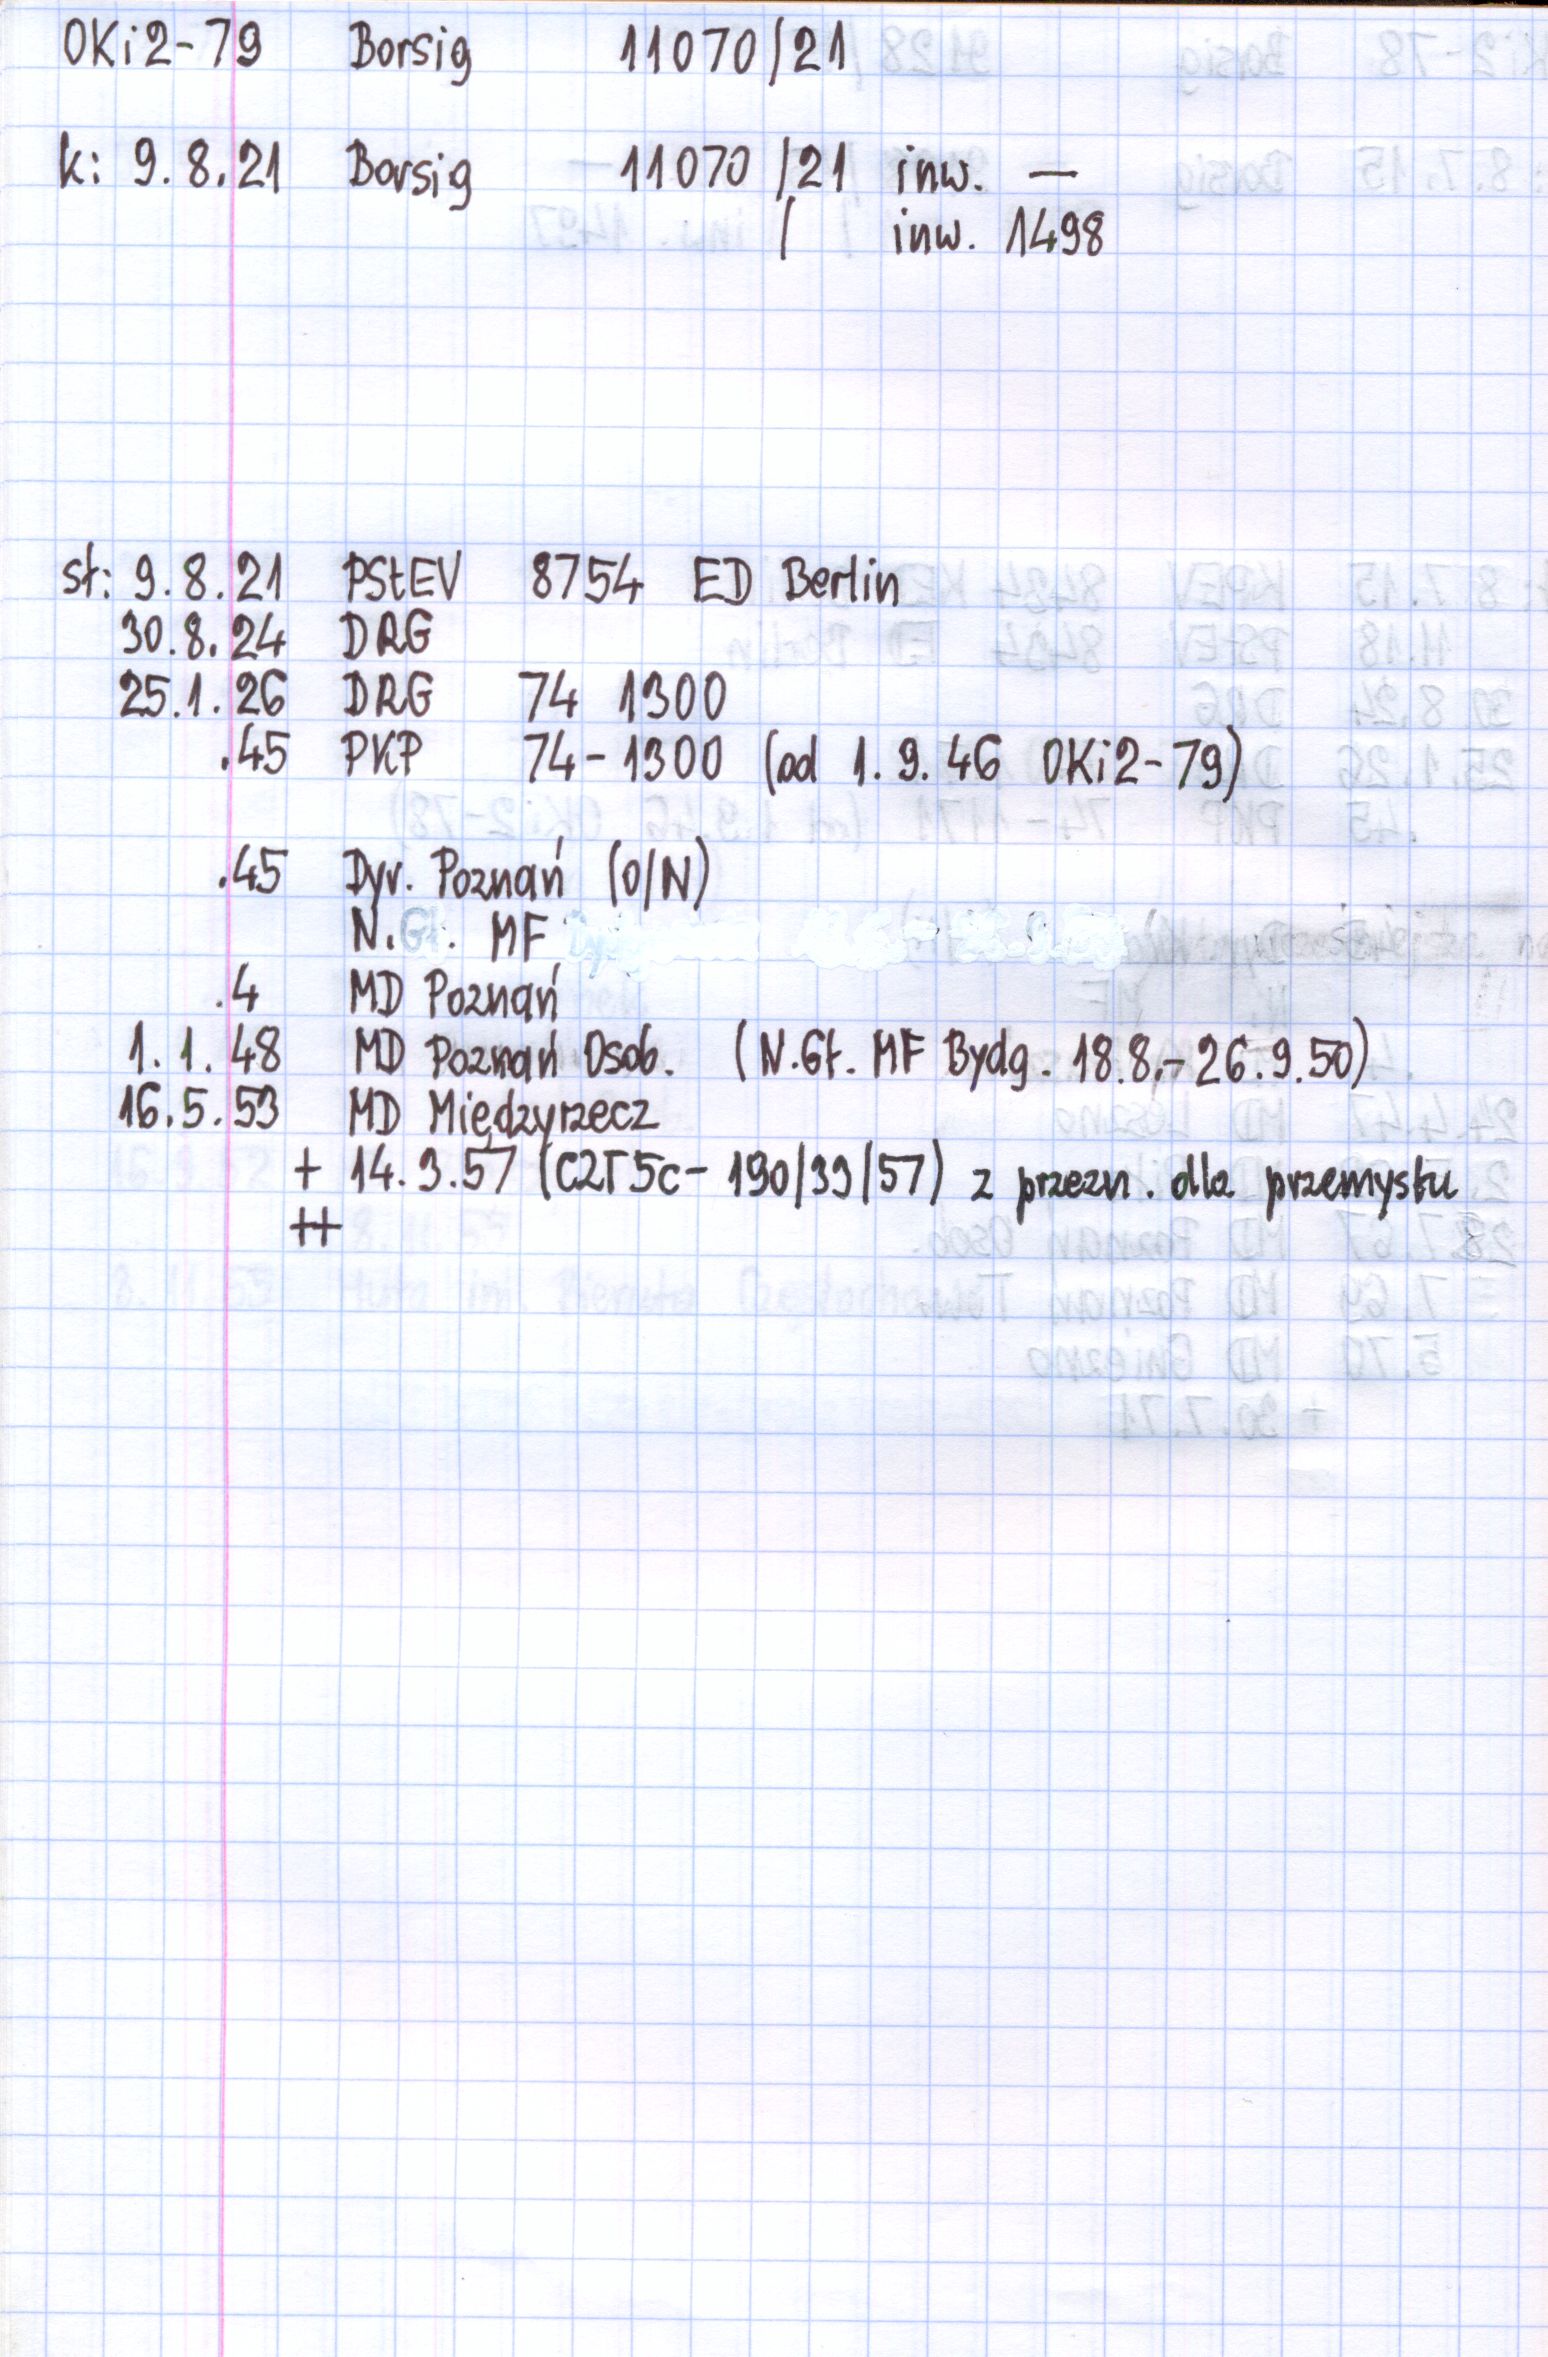 OKi2-79 Borsig 11070/21
k: 9.8.21 Borsig 11070/21 inw. —
/ inw. 1498
st: 9.8.21 PStEV 8754 ED Berlin
30.8.24 DRG
25.1.26 DRG 74 1300
.45 PKP 74-1300 (od 1.9.46 OKi2-79)
.45 Dyr. Poznań (O/N)
N.Gł. MF
.4 MD Poznań
1.1.48 MD Poznań Osob. (N.Gł. MF Bydg. 18.8.-26.9.50)
16.5.53 MD Międzyrzecz
+ 14.3.57 (CZT5c-190/39/57) z przezn. dla przemysłu
++